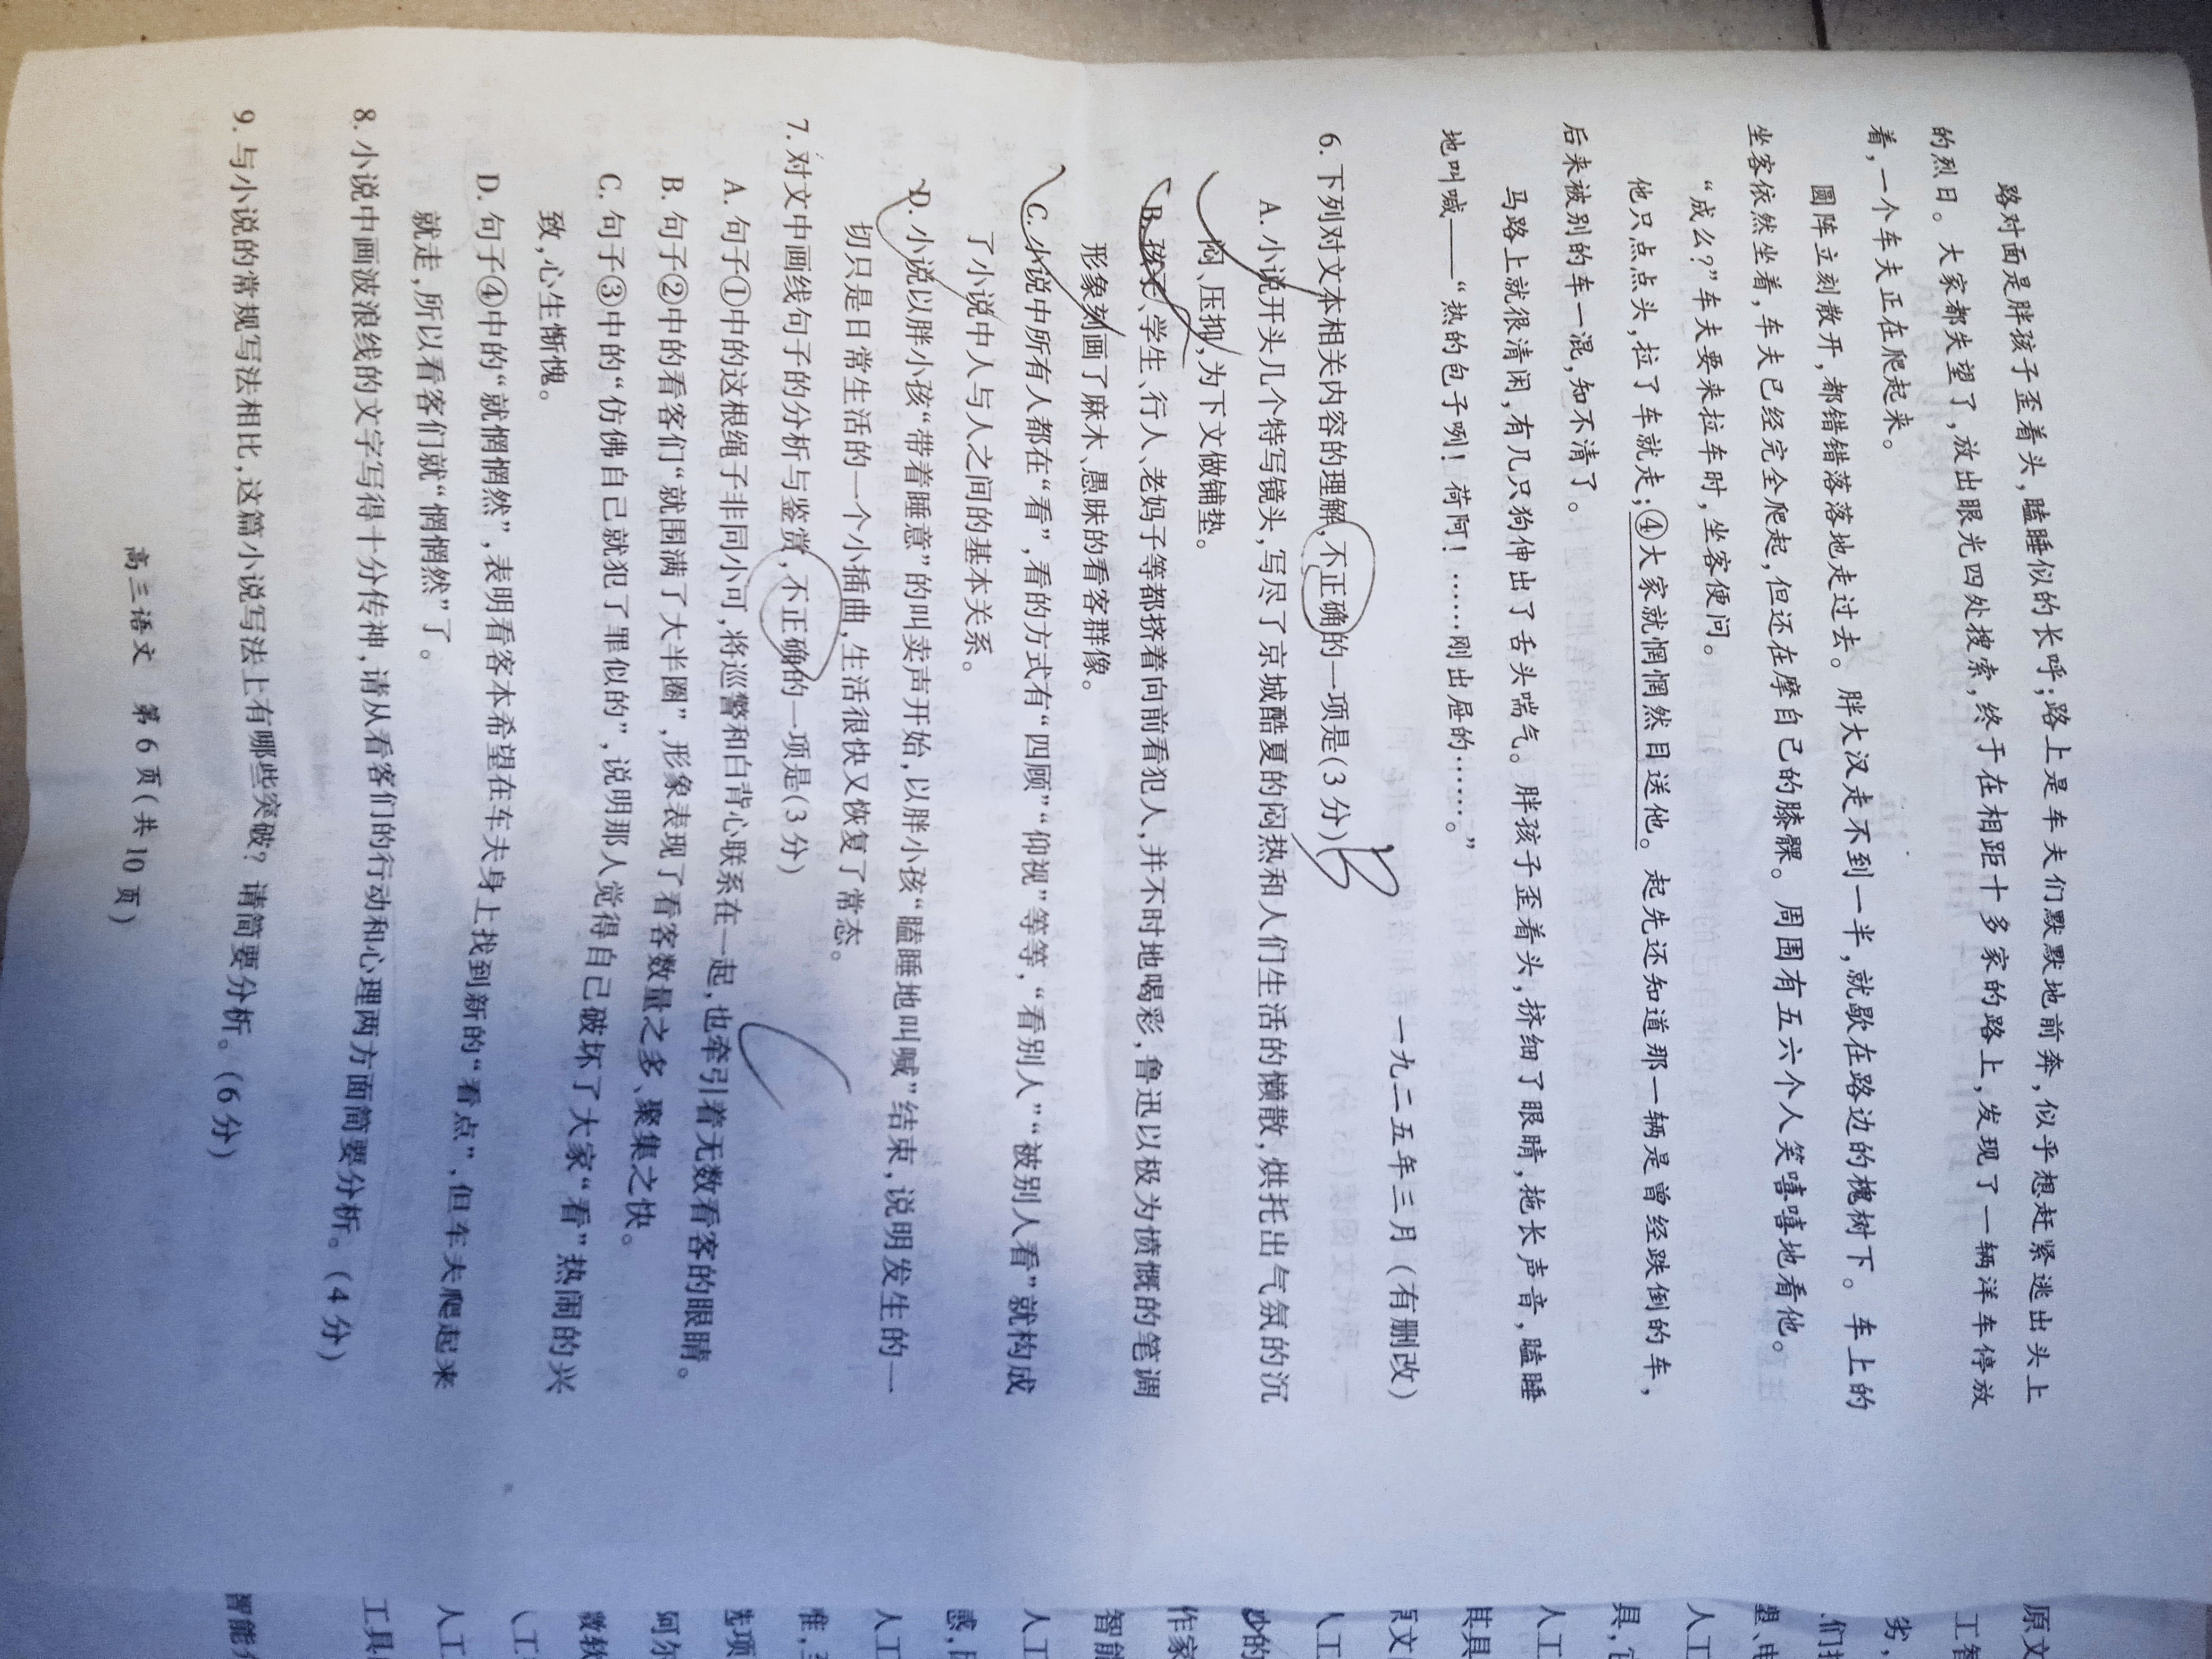 路对面是胖孩子歪着头，瞌睡似的长呼；路上是车夫们默默地前奔，似乎想赶紧逃出头上
的烈日。大家都失望了，放出眼光四处搜索，终于在相距十多家的路上，发现了一辆洋车停放
着，一个车夫正在爬起来。
圆阵立刻散开，都错错落落地走过去。胖大汉走不到一半，就歇在路边的槐树下。车上的
坐客依然坐着，车夫已经完全爬起，但还在摩自己的膝髁。周围有五六个人笑嘻嘻地看他。
“成么？”车夫要来拉车时，坐客便问。
他只点点头，拉了车就走；④大家就惘惘然目送他。起先还知道那一辆是曾经跌倒的车，
后来被别的车一混，知不清了。
马路上就很清闲，有几只狗伸出了舌头喘气。胖孩子歪着头，挤细了眼睛，拖长声音，瞌睡
地叫喊——“热的包子咧！荷阿！……刚出屉的……。”
一九二五年三月（有删改）
6. 下列对文本相关内容的理解，不正确的一项是(3 分) B
A. 小说开头几个特写镜头，写尽了京城酷夏的闷热和人们生活的懒散，烘托出气氛的沉
闷、压抑，为下文做铺垫。
B. 孩子、学生、行人、老妈子等都挤着向前看犯人，并不时地喝彩，鲁迅以极为愤慨的笔调
形象刻画了麻木、愚昧的看客群像。
C. 小说中所有人都在“看”，看的方式有“四顾”“仰视”等等，“看别人”“被别人看”就构成
了小说中人与人之间的基本关系。
D. 小说以胖小孩“带着睡意”的叫卖声开始，以胖小孩“瞌睡地叫喊”结束，说明发生的一
切只是日常生活的一个小插曲，生活很快又恢复了常态。
7. 对文中画线句子的分析与鉴赏，不正确的一项是(3 分)
A. 句子①中的这根绳子非同小可，将巡警和白背心联系在一起，也牵引着无数看客的眼睛。
B. 句子②中的看客们“就围满了大半圈”，形象表现了看客数量之多、聚集之快。
C. 句子③中的“仿佛自己就犯了罪似的”，说明那人觉得自己破坏了大家“看”热闹的兴
致，心生惭愧。
D. 句子④中的“就惘惘然”，表明看客本希望在车夫身上找到新的“看点”，但车夫爬起来
就走，所以看客们就“惘惘然”了。
8. 小说中画波浪线的文字写得十分传神，请从看客们的行动和心理两方面简要分析。(4 分)
9. 与小说的常规写法相比，这篇小说写法上有哪些突破？请简要分析。(6 分)
高三语文 第 6 页(共 10 页)
原文
工智
劣，
们
人工
具，
人工
其具
人工
的
作家
智能
人工
感，
人工
唯，
选项
阿尔
人工
人工
工具
智能